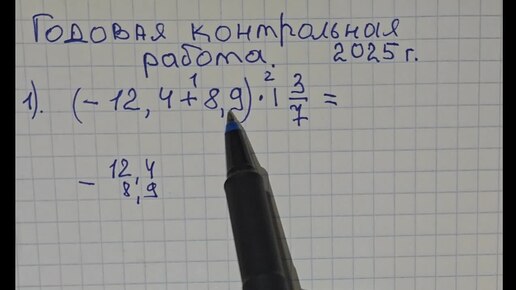 Годовая контрольная
работа. 2025г.
1). (-12,4+8,9)·1 3/7 =
1 2
- 12,4
8,9